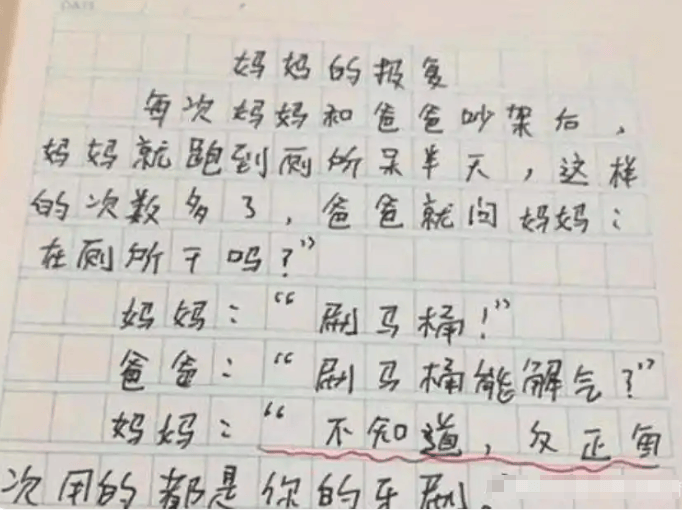 妈妈的报复
每次妈妈和爸爸吵架后，
妈妈就跑到厕所呆半天，这样
的次数多了，爸爸就问妈妈：
在厕所干吗？”
妈妈：“刷马桶！”
爸爸：“刷马桶能解气？”
妈妈：“不知道，反正每
次用的都是你的牙刷。